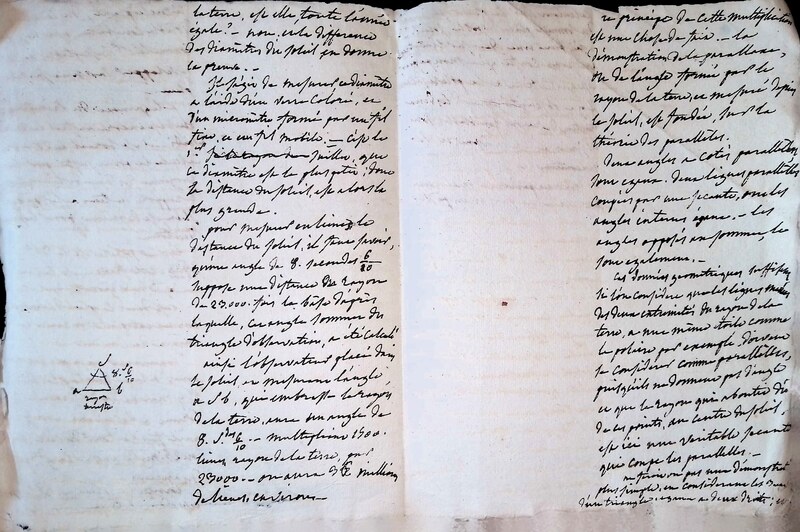 la terre, est elle, toute l'année
egale? — non, et la difference
des diametres du soleil en donne
la preuve. —
il s'agit de mesurer ce diametre
a l'aide d'un verre coloré, et
d'un micrometre formé par un fil
fixe, et un fil mobile. — c'est le
1er juillet, que
ce diametre est le plus petit; donc
la distance du soleil, est alors la
plus grande.
pour mesurer en lieues la
distance du soleil, il faut savoir,
qu'un angle de 8. secondes 6/10
suppose une distance de rayon
de 23,000. fois la base d'après
laquelle, cet angle sommet du
triangle d'observation, a été calculé
ainsi l'observateur placé dans
le soleil, et mesurant l'angle,
a S b, qui embrasse le rayon
de la terre, aura un angle de
8. S. 6/10 — multiplions 1500.
lieues rayon de la terre, par
23000 — on aura millions
de lieues, environ —
a S b
8. S. 6/10
rayon
terrestre
le principe de cette multiplication
est une chose de fait. — la
démonstration de la parallaxe,
ou de l'angle formé par le
rayon de la terre, et mesuré depuis
le soleil, est fondée, sur la
théorie des paralleles.
deux angles a cotés paralleles
sont egaux. deux lignes paralleles
coupées par une secante, ont les
angles internes egaux, — les
angles opposés au sommet, le
sont egalement. —
ces données geometriques suffisent
si l'on considere que les lignes
des deux extremités du rayon de la
terre, a une même etoile comme
la polaire par exemple, doivent
se considerer comme paralleles,
puisqu'ils ne donnent pas d'angle
et que le rayon qui aboutit de
de ces points, au centre du soleil,
est ici une veritable secante
que coupe les paralleles. —
ne feroit on pas une démonstration
plus simple, en considerant les
d'un triangle egaux a deux droits;